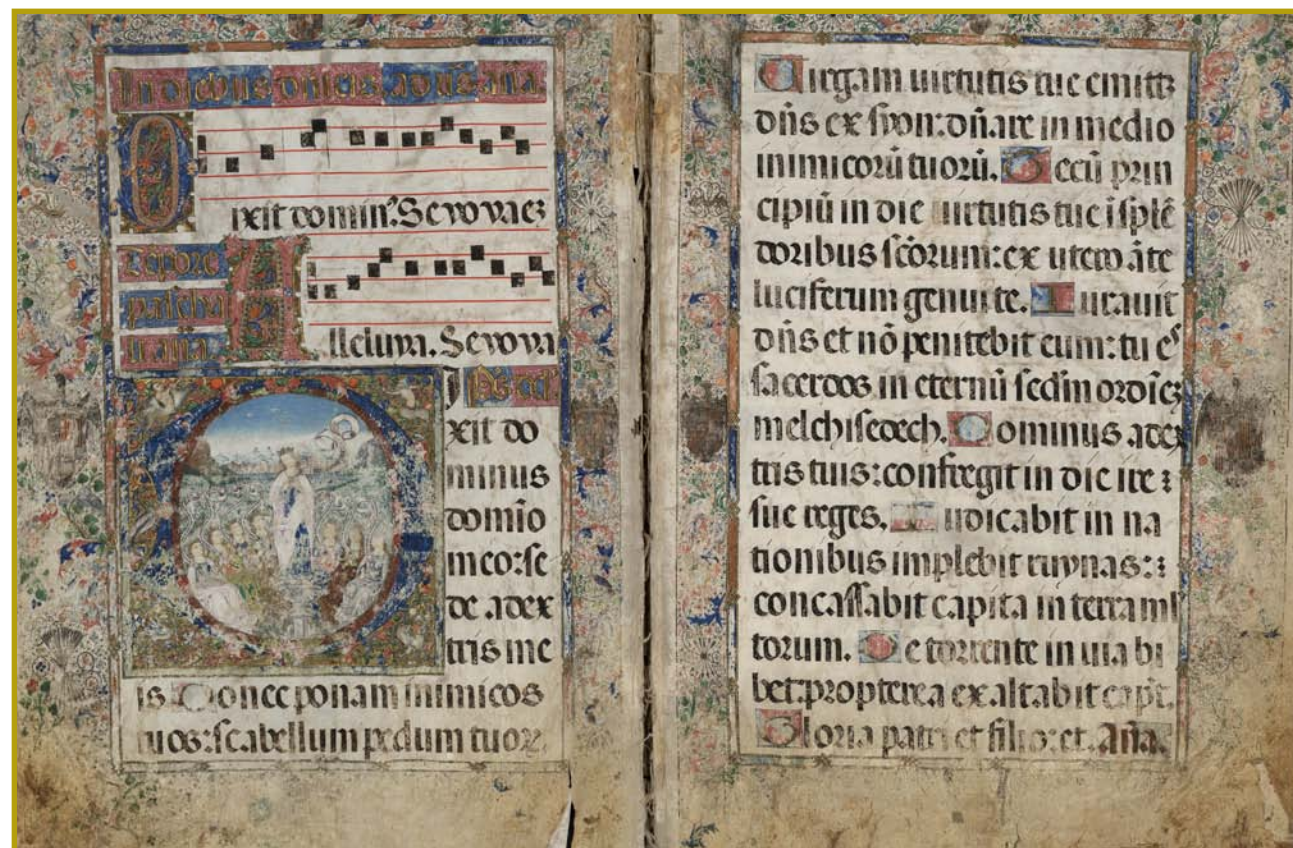 In diebus dn̄icis. ad vs̄. an̄a.
Dixit domin⁹. Sevovaeꝫ
Tēpore
pascha
li. an̄a. Alleluya. Sevova
Dixit do
minus
domīo
meo: se
de adex
tris me
is Donec ponam inimicos
tuos: scabellum pedum tuoꝝ.
Uirgam uirtutis tue emittꝫ
dn̄s ex syon: dn̄are in medio
inimicorū tuorū. Tecū prin
cipiū in die uirtutis tue ī splē
doribus sc̄orum: ex utero āte
luciferum genui te. Iurauit
dn̄s et nō penitebit eum: tu eˢ
sacerdos in eternū scd̄m ordīeꝫ
melchisedech. Dominus adex
tris tuis: confregit in die ire ⁊
sue reges. Iudicabit in na
tionibus implebit ruynas: ⁊
concassabit capita in terra ml̄
torum. De torrente in uia bi
bet: propterea exaltabit cap̄t.
Gloria patri et filio: et. An̄a.